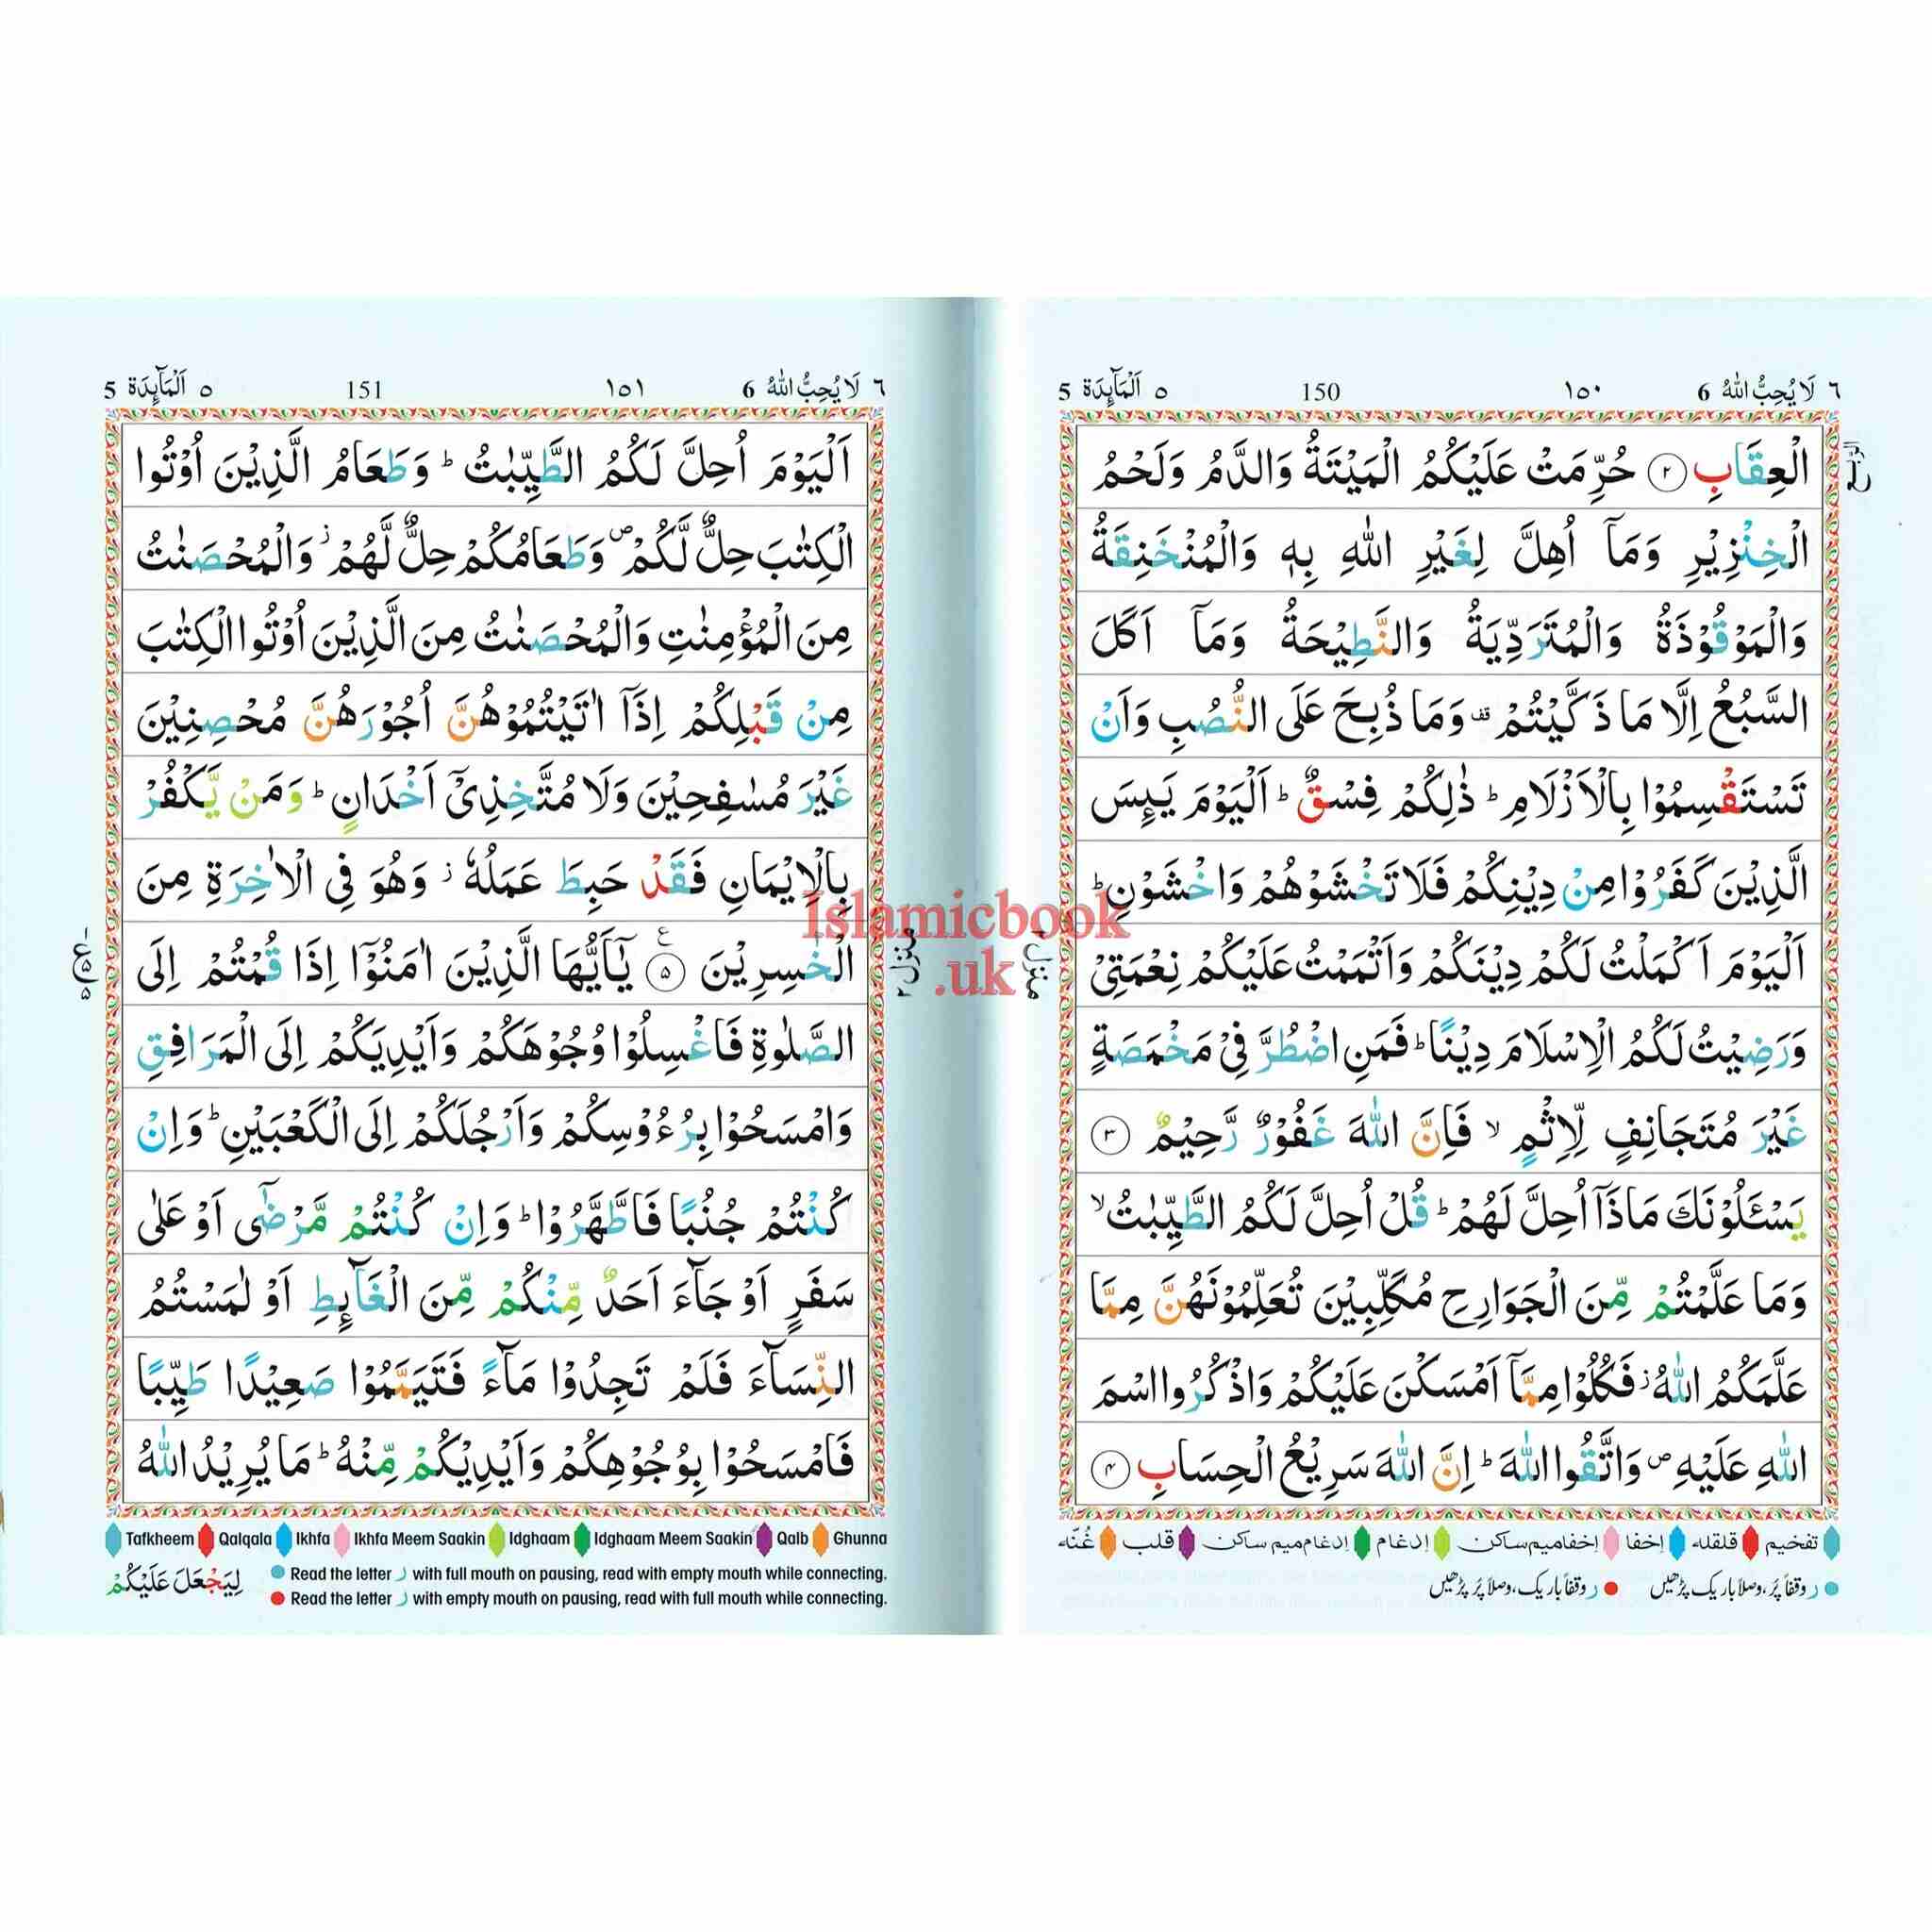 ٦ لَا يُحِبُّ اللّٰهُ 6 ١٥٠ 150 ٥ اَلْمَآئِدَة 5
الْعِقَابِ ۝۲ حُرِّمَتْ عَلَيْكُمُ الْمَيْتَةُ وَالدَّمُ وَلَحْمُ
الْخِنْزِيْرِ وَمَآ اُهِلَّ لِغَيْرِ اللّٰهِ بِهٖ وَالْمُنْخَنِقَةُ
وَالْمَوْقُوْذَةُ وَالْمُتَرَدِّيَةُ وَالنَّطِيْحَةُ وَمَآ اَكَلَ
السَّبُعُ اِلَّا مَا ذَكَّيْتُمْ ۣ قف وَمَا ذُبِحَ عَلَى النُّصُبِ وَاَنْ
تَسْتَقْسِمُوْا بِالْاَزْلَامِ ؕ ذٰلِكُمْ فِسْقٌ ؕ اَلْيَوْمَ يَىِٕسَ
الَّذِيْنَ كَفَرُوْا مِنْ دِيْنِكُمْ فَلَا تَخْشَوْهُمْ وَاخْشَوْنِ ؕ
اَلْيَوْمَ اَكْمَلْتُ لَكُمْ دِيْنَكُمْ وَاَتْمَمْتُ عَلَيْكُمْ نِعْمَتِىْ
وَرَضِيْتُ لَكُمُ الْاِسْلَامَ دِيْنًا ؕ فَمَنِ اضْطُرَّ فِىْ مَخْمَصَةٍ
غَيْرَ مُتَجَانِفٍ لِّاِثْمٍ ۙ فَاِنَّ اللّٰهَ غَفُوْرٌ رَّحِيْمٌ ۝۳
يَسْـَٔلُوْنَكَ مَاذَآ اُحِلَّ لَهُمْ ؕ قُلْ اُحِلَّ لَكُمُ الطَّيِّبٰتُ ۙ
وَمَا عَلَّمْتُمْ مِّنَ الْجَوَارِحِ مُكَلِّبِيْنَ تُعَلِّمُوْنَهُنَّ مِمَّا
عَلَّمَكُمُ اللّٰهُ ز فَكُلُوْا مِمَّآ اَمْسَكْنَ عَلَيْكُمْ وَاذْكُرُوا اسْمَ
اللّٰهِ عَلَيْهِ ص وَاتَّقُوا اللّٰهَ ؕ اِنَّ اللّٰهَ سَرِيْعُ الْحِسَابِ ۝۴
تفخیم قلقلہ اِخفا اِخفا میم ساکن اِدغام اِدغام میم ساکن قلب غُنّہ
ر وقفاً پُر، وصلاً باریک پڑھیں ر وقفاً باریک، وصلاً پُر پڑھیں
منزل ٢
Islamicbook
.uk
٦ لَا يُحِبُّ اللّٰهُ 6 ١٥١ 151 ٥ اَلْمَآئِدَة 5
اَلْيَوْمَ اُحِلَّ لَكُمُ الطَّيِّبٰتُ ؕ وَطَعَامُ الَّذِيْنَ اُوْتُوا
الْكِتٰبَ حِلٌّ لَّكُمْ ص وَطَعَامُكُمْ حِلٌّ لَّهُمْ ز وَالْمُحْصَنٰتُ
مِنَ الْمُؤْمِنٰتِ وَالْمُحْصَنٰتُ مِنَ الَّذِيْنَ اُوْتُوا الْكِتٰبَ
مِنْ قَبْلِكُمْ اِذَآ اٰتَيْتُمُوْهُنَّ اُجُوْرَهُنَّ مُحْصِنِيْنَ
غَيْرَ مُسٰفِحِيْنَ وَلَا مُتَّخِذِىْٓ اَخْدَانٍ ؕ وَمَنْ يَّكْفُرْ
بِالْاِيْمَانِ فَقَدْ حَبِطَ عَمَلُهٗ ز وَهُوَ فِى الْاٰخِرَةِ مِنَ
الْخٰسِرِيْنَ ۝۵ ع يٰٓاَيُّهَا الَّذِيْنَ اٰمَنُوْٓا اِذَا قُمْتُمْ اِلَى
الصَّلٰوةِ فَاغْسِلُوْا وُجُوْهَكُمْ وَاَيْدِيَكُمْ اِلَى الْمَرَافِقِ
وَامْسَحُوْا بِرُءُوْسِكُمْ وَاَرْجُلَكُمْ اِلَى الْكَعْبَيْنِ ؕ وَاِنْ
كُنْتُمْ جُنُبًا فَاطَّهَّرُوْا ؕ وَاِنْ كُنْتُمْ مَّرْضٰٓى اَوْ عَلٰى
سَفَرٍ اَوْ جَآءَ اَحَدٌ مِّنْكُمْ مِّنَ الْغَآئِطِ اَوْ لٰمَسْتُمُ
النِّسَآءَ فَلَمْ تَجِدُوْا مَآءً فَتَيَمَّمُوْا صَعِيْدًا طَيِّبًا
فَامْسَحُوْا بِوُجُوْهِكُمْ وَاَيْدِيْكُمْ مِّنْهُ ؕ مَا يُرِيْدُ اللّٰهُ
Tafkheem Qalqala Ikhfa Ikhfa Meem Saakin Idghaam Idghaam Meem Saakin Qalb Ghunna
Read the letter ر with full mouth on pausing, read with empty mouth while connecting.
Read the letter ر with empty mouth on pausing, read with full mouth while connecting.
لِيَجْعَلَ عَلَيْكُمْ